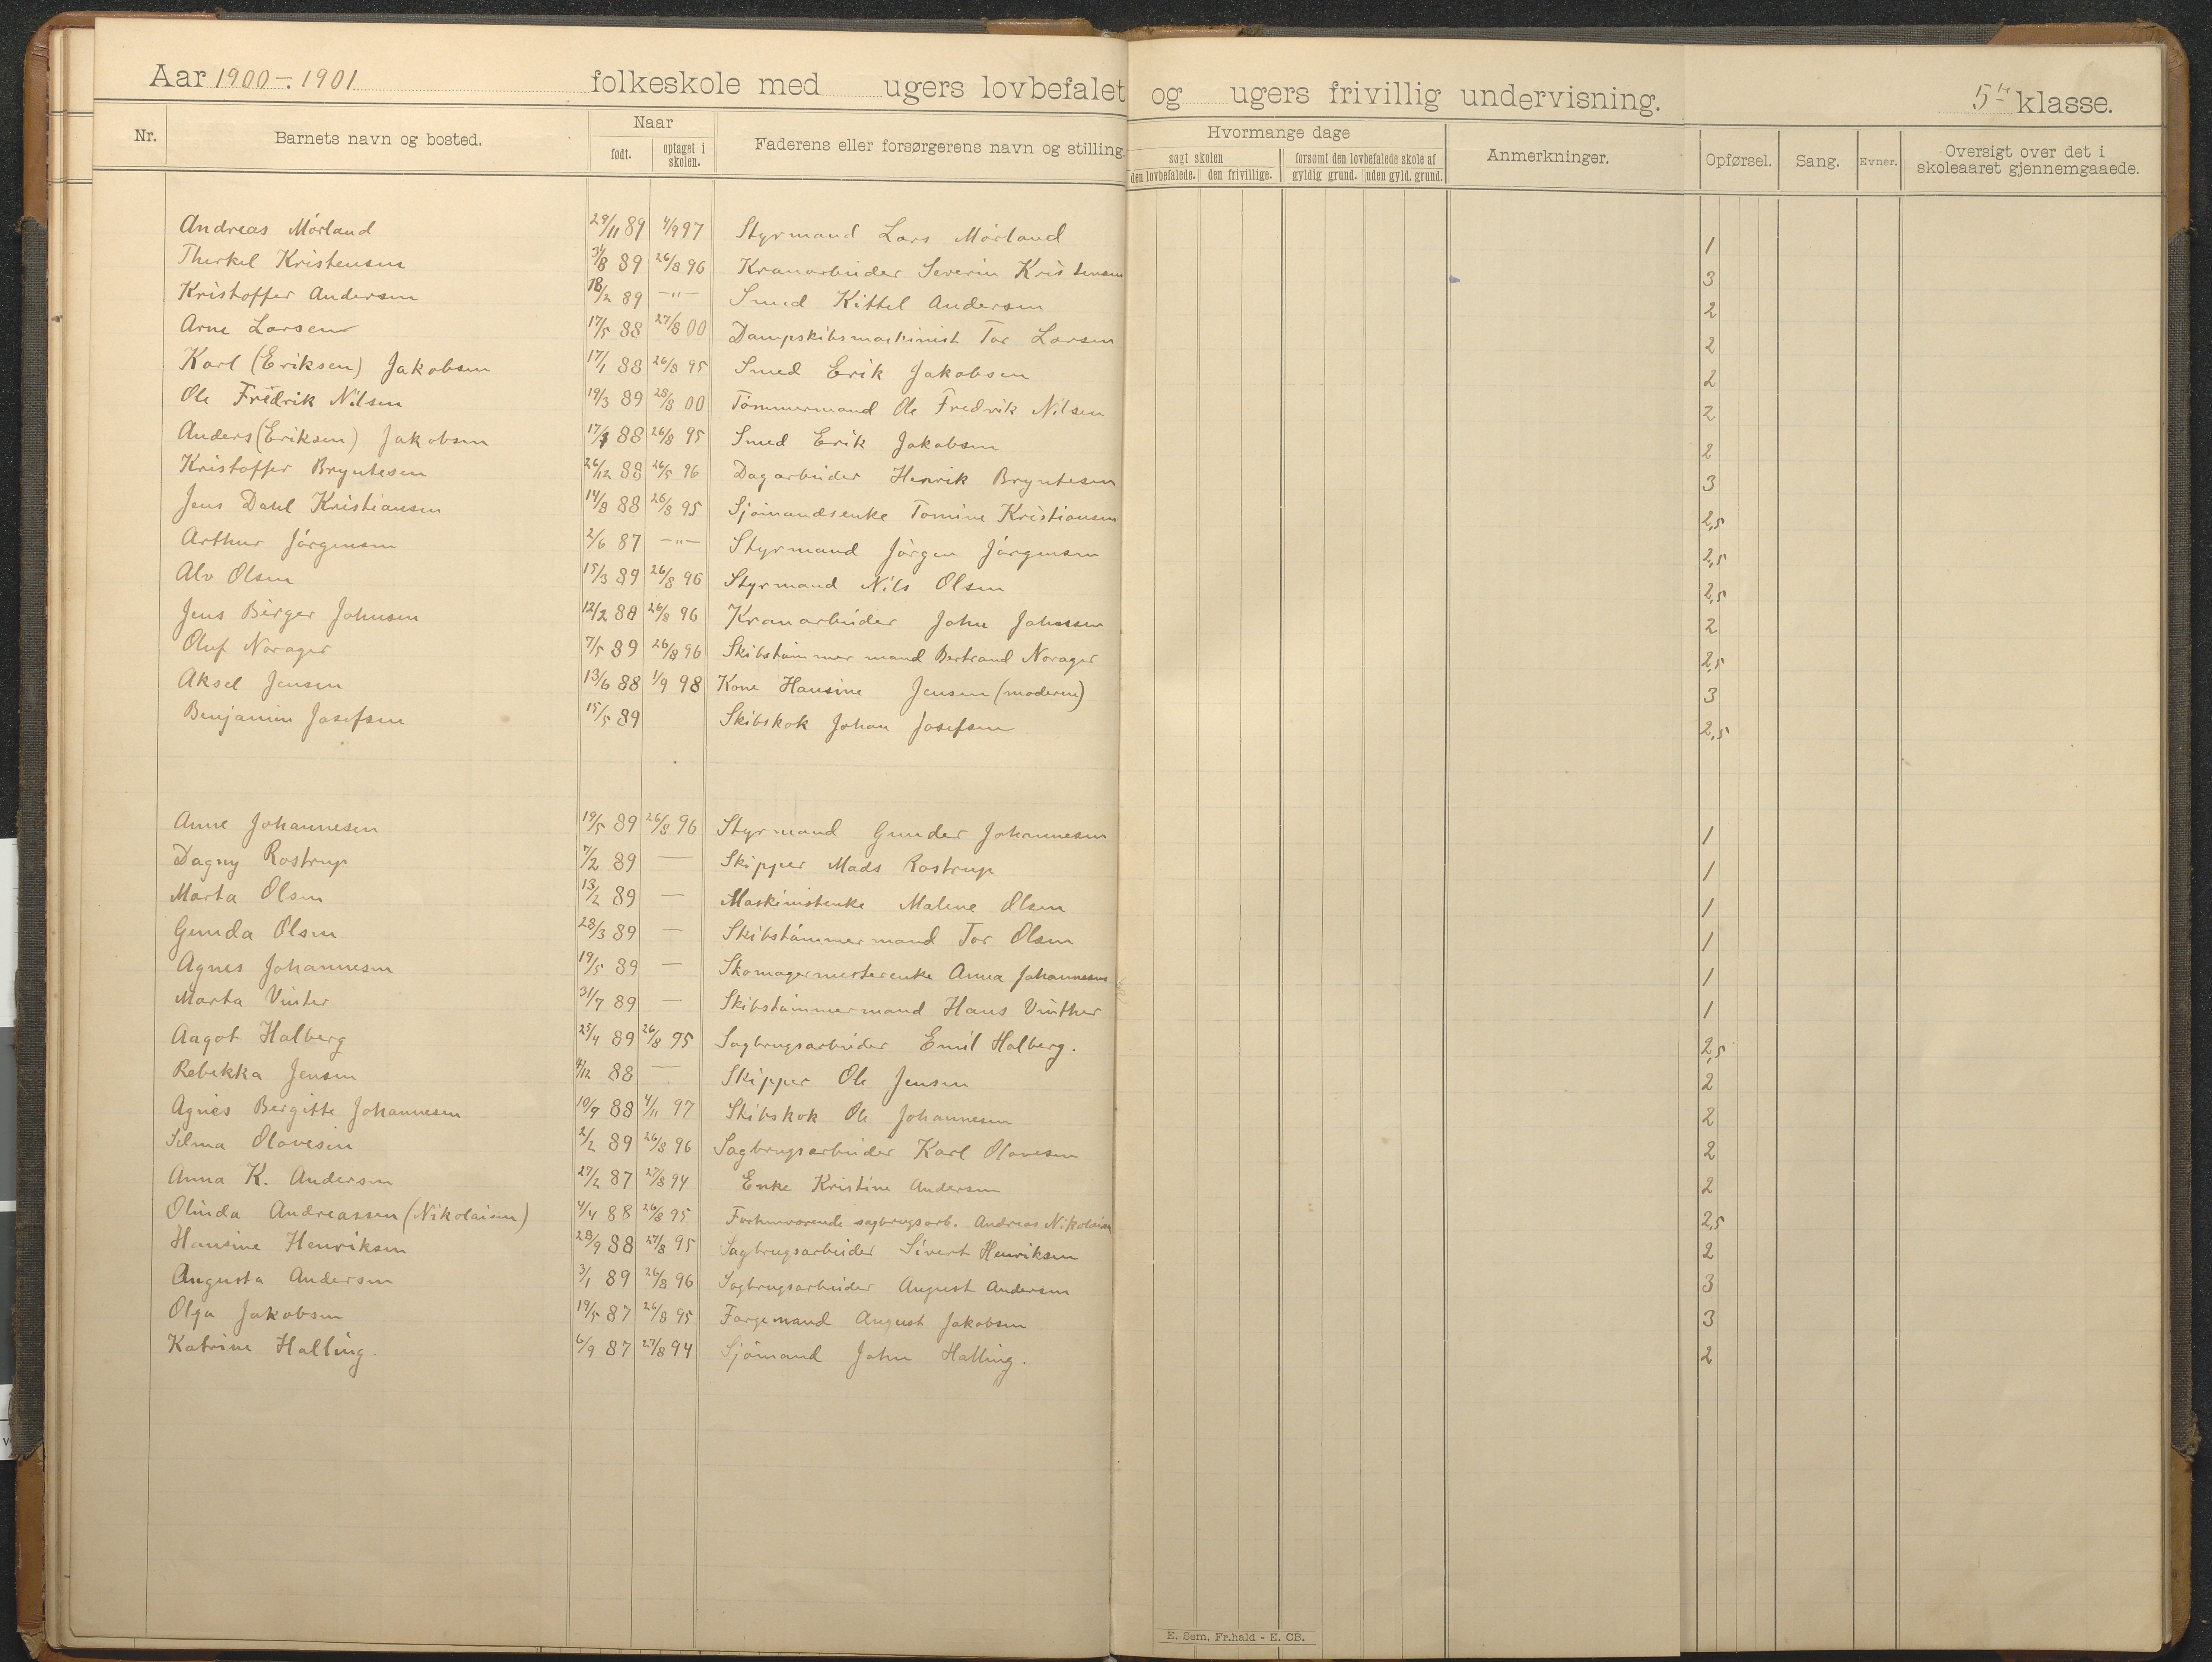 Aar 1900-.1901 folkeskole med ugers lovbefalet og ugers frivillig undervisning. 5te klasse.
Nr. Barnets navn og bosted. Naar født. optaget i skolen. Faderens eller forsørgerens navn og stilling. Hvormange dage søgt skolen den lovbefalede. den frivillige. forsømt den lovbefalede skole af gyldig grund. uden gyld. grund. Anmerkninger. Opførsel. Sang. Evner. Oversigt over det i skoleaaret gjennemgaaede.
Andreas Mørland 29/11 89 4/9 97 Styrmand Lars Mørland 1
Therkel Kristensen 31/8 89 26/8 96 Kranarbeider Severin Kristensen 3
Kristoffer Andersen 18/2 89 -"- Smed Kittel Andersen 2
Arne Larsen 17/5 88 27/8 00 Dampskibsmaskinist Tor Larsen 2
Karl (Eriksen) Jakobsen 17/1 88 26/8 95 Smed Erik Jakobsen 2
Ole Fredrik Nilsen 19/3 89 28/8 00 Tømmermand Ole Fredrik Nilsen 2
Anders (Eriksen) Jakobsen 17/1 88 26/8 95 Smed Erik Jakobsen 2
Kristoffer Bryntesen 26/12 88 26/5 96 Dagarbeider Henrik Bryntesen 3
Jens Dahl Kristiansen 14/8 88 26/8 95 Sjømandsenke Tomine Kristiansen 2,5
Arthur Jørgensen 2/6 87 -"- Styrmand Jørgen Jørgensen 2,5
Alv Olsen 15/3 89 26/8 96 Styrmand Nils Olsen 2,5
Jens Birger Johnsen 12/2 88 26/8 96 Kranarbeider John Johnsen 2
Oluf Norager 7/5 89 26/8 96 Skibstømmermand Bertrand Norager 2,5
Aksel Jensen 13/6 88 1/9 98 Kone Hansine Jensen (moderen) 3
Benjamin Josefsen 15/5 89 Skibskok Johan Josefsen 2,5
Anne Johannesen 19/5 89 26/8 96 Styrmand Gunder Johannesen 1
Dagny Rostrup 7/2 89 — Skipper Mads Rostrup 1
Marta Olsen 13/2 89 — Maskinistenke Malene Olsen 1
Gunda Olsen 28/3 89 — Skibstømmermand Tor Olsen 1
Agnes Johannesen 19/5 89 — Skomagermesterenke Anna Johannesen 1
Marta Vinter 31/7 89 — Skibstømmermand Hans Vinther 1
Aagot Halberg 25/4 89 26/8 95 Sagbrugsarbeider Emil Halberg. 2,5
Rebekka Jensen 4/12 88 — Skipper Ole Jensen 2
Agnes Bergitte Johannesen 10/9 88 4/11 97 Skibskok Ole Johannesen 2
Selma Olavesen 2/2 89 26/8 96 Sagbrugsarbeider Karl Olavesen 2
Anna K. Andersen 27/2 87 27/8 94 Enke Kristine Andersen 2
Olinda Andreassen (Nikolaisen) 4/4 88 26/8 95 Forhenværende sagbrugsarb. Andreas Nikolaisen 2,5
Hansine Henriksen 28/9 88 27/8 95 Sagbrugsarbeider Sivert Henriksen 2
Augusta Andersen 3/1 89 26/8 96 Sagbrugsarbeider August Andersen 3
Olga Jakobsen 19/5 87 26/8 95 Færgemand August Jakobsen 3
Katrine Halling. 6/9 87 27/8 94 Sjømand John Halling. 2
E. Sem, Fr.hald - E. CB.